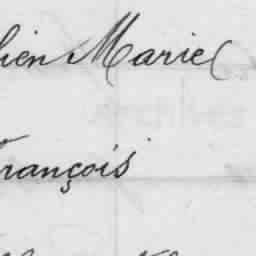 lien Marie
Archives
François